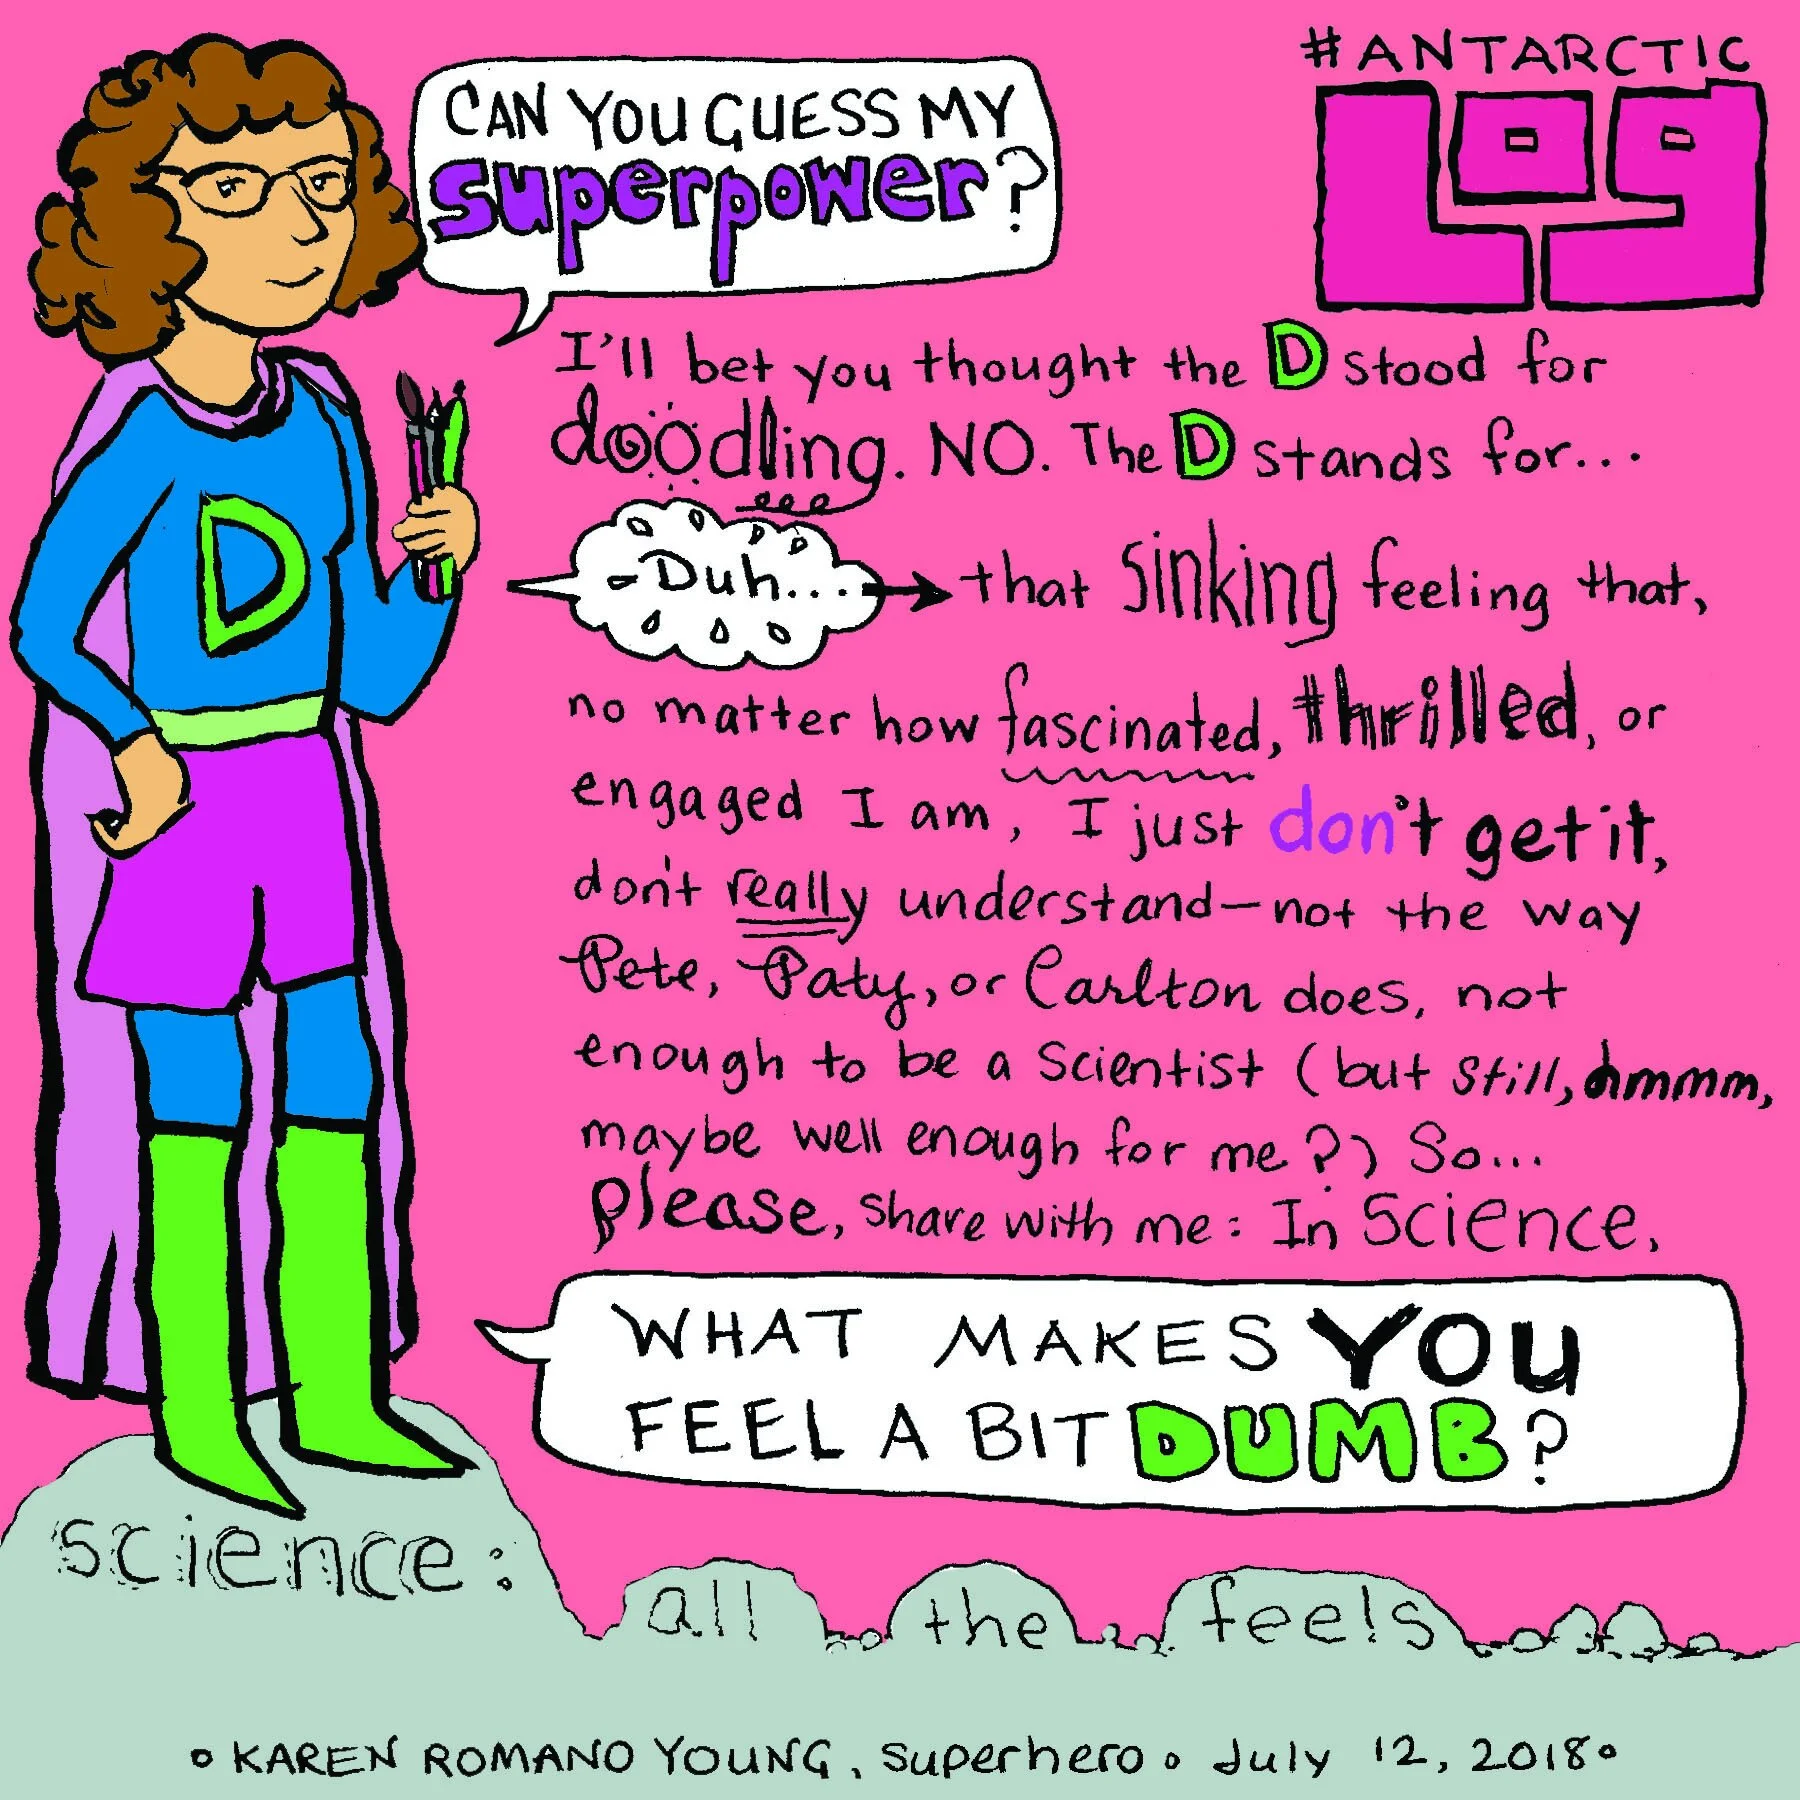 #ANTARCTIC
Log
CAN YOU GUESS MY
superpower?
D
I'll bet you thought the D stood for
doodling. NO. The D stands for...
Duh... → that sinking feeling that,
no matter how fascinated, thrilled, or
engaged I am, I just don't get it,
don't really understand—not the way
Pete, Paty, or Carlton does, not
enough to be a scientist (but still, hmmm,
maybe well enough for me?) So...
please, share with me: In Science,
WHAT MAKES YOU
FEEL A BIT DUMB?
science:
all the feels
• KAREN ROMANO YOUNG, superhero • July 12, 2018 •